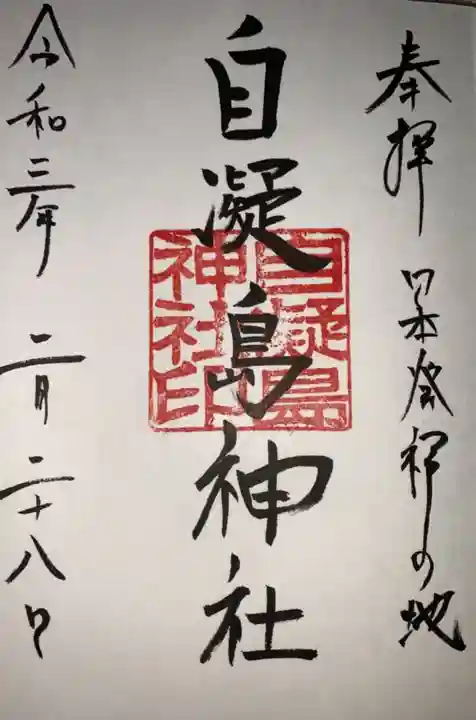 奉拝 日本発祥の地
自凝島神社
自凝島
神社印
令和三年 二月二十八日